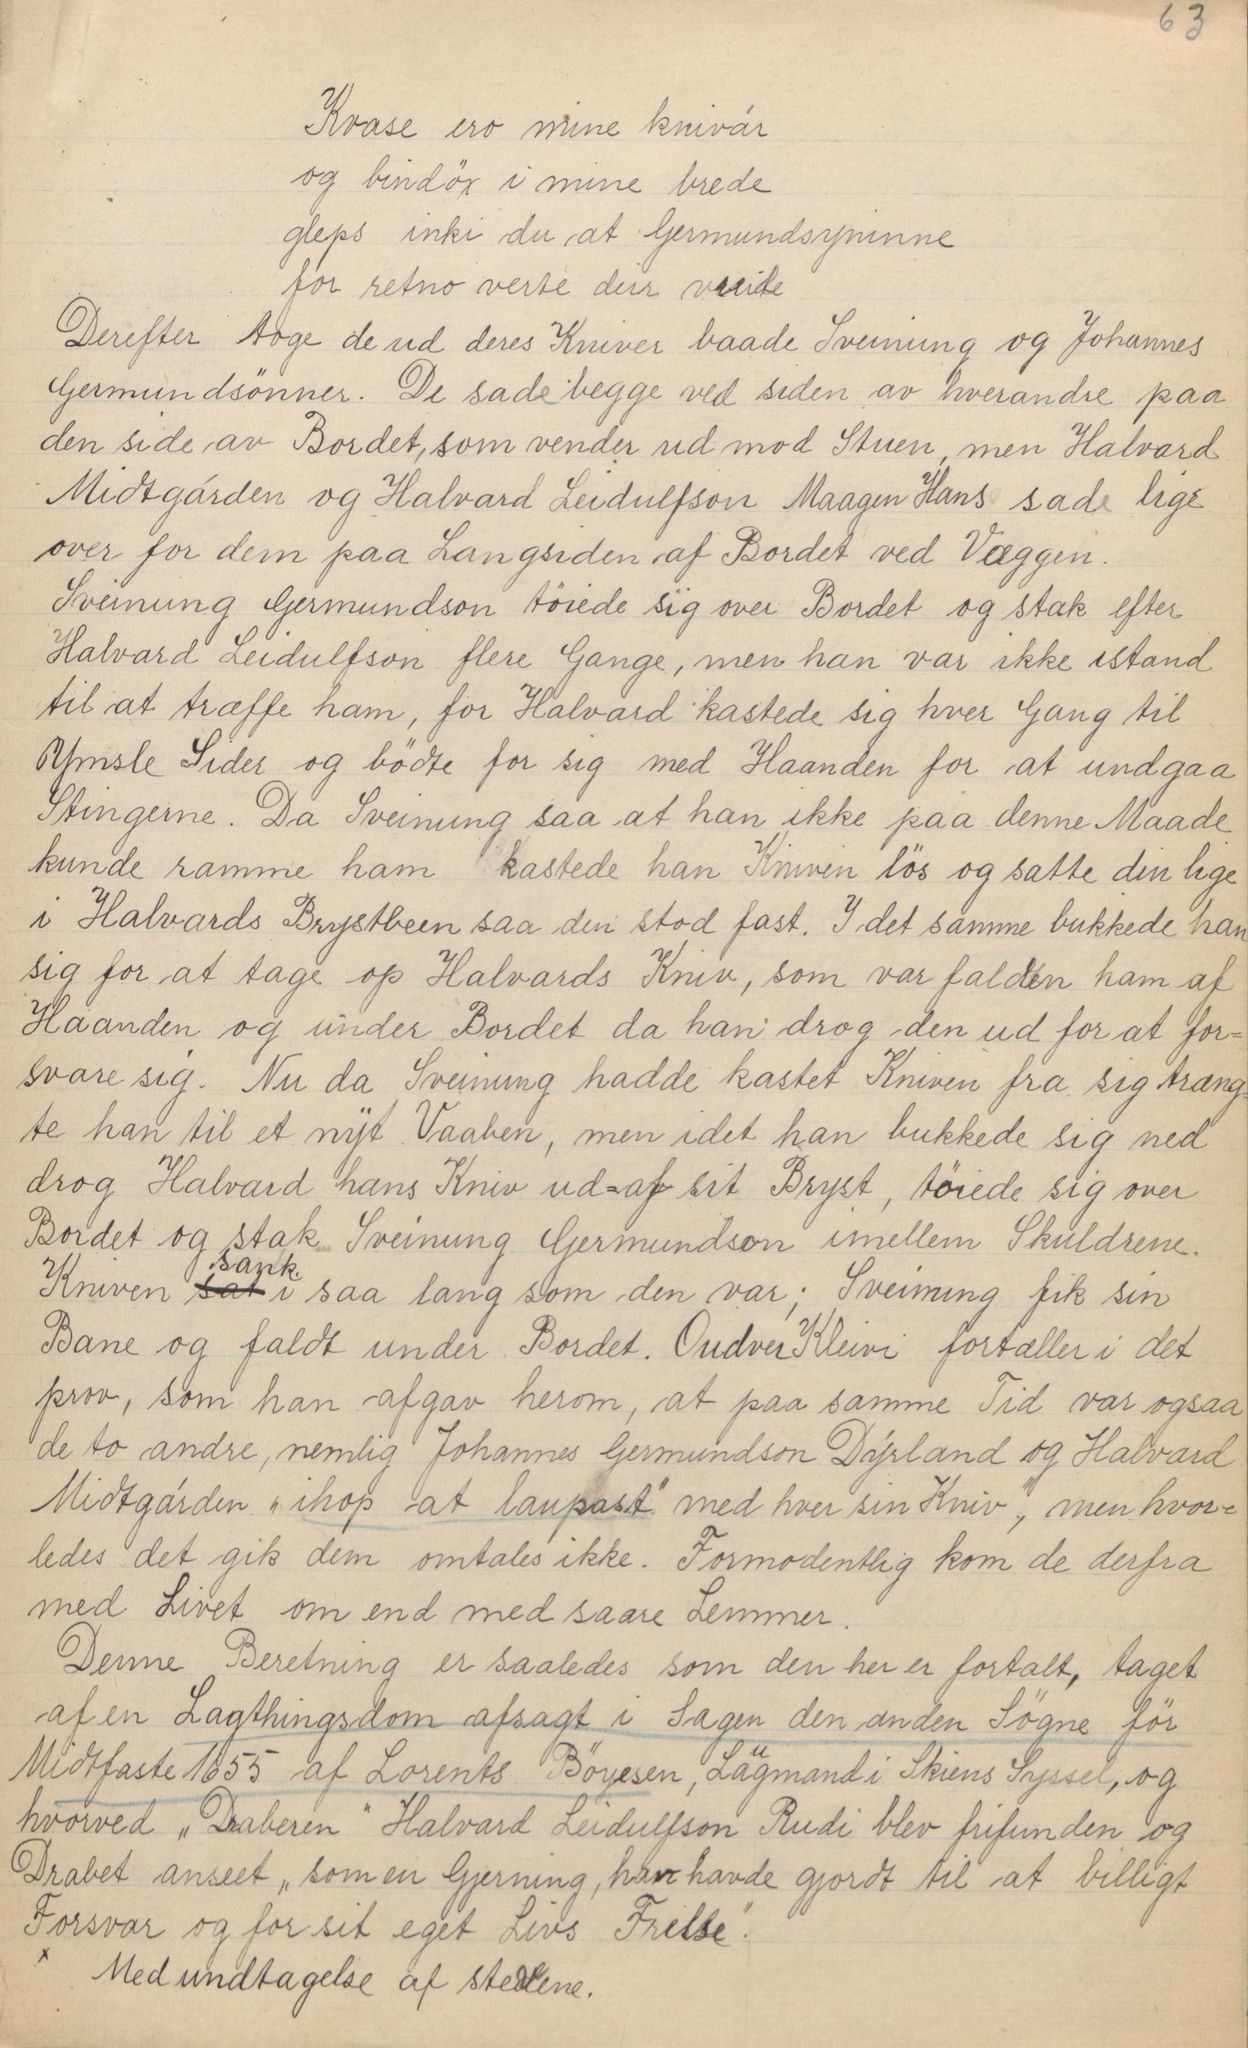 63
Kvase ero mine knivár
og bindöx i mine brede
gleps inki du at Germundsyninne
for retno verte deir vreide
Derefter toge de ud deres Kniver baade Sveinung og Johannes
Germundsönner. De sade begge ved siden av hverandre paa
den side av Bordet, som vender ud mod Stuen, men Halvard
Midtgården og Halvard Leidulfson Maagen Hans sade lige
over for dem paa Langsiden af Bordet ved Væggen.
Sveinung Germundson töiede sig over Bordet og stak efter
Halvard Leidulfson flere Gange, men han var ikke istand
til at træffe ham, for Halvard kastede sig hver Gang til
Ymsle Sider og bödte for sig med Haanden for at undgaa
Stingerne. Da Sveinung saa at han ikke paa denne Maade
kunde ramme ham kastede han Kniven lös og satte din lige
i Halvards Brystbeen saa den stod fast. I det samme bukkede han
sig for at tage op Halvards Kniv, som var falden ham af
Haanden og under Bordet da han drog den ud for at for=
svare sig. Nu da Sveinung hadde kastet Kniven fra sig træng=
te han til et nÿt Vaaben, men idet han bukkede sig ned
drog Halvard hans Kniv ud=af sit Bryst, töiede sig over
Bordet og stak Sveinung Germundson imellem Skuldrene.
Kniven sat sank i saa lang som den var; Sveinung fik sin
Bane og faldt under Bordet. Oudver Kleivi fortæller i det
prov, som han afgav herom, at paa samme Tid var ogsaa
de to andre, nemlig Johannes Germundson Dÿrland og Halvard
Midtgården "ihop at laupast" med hver sin Kniv", men hvor=
ledes det gik dem omtales ikke. Formodentlig kom de derfra
med Livet om end med saare Lemmer.
Denne Beretning er saaledes som den her er fortalt, taget
af en Lagthingsdom afsagt i Sagen den anden Sögne för
Midtfaste 1655 af Lorents Böyesen, Lagmand i Skiens Syssel, og
hvorved "Draberen" Halvard Leidulfson Rudi blev frifunden og
Drabet anseet "som en Gjerning, han havde gjordt til at billigt
Forsvar og for sit eget Livs Frelse".
x Med undtagelse af stedene.